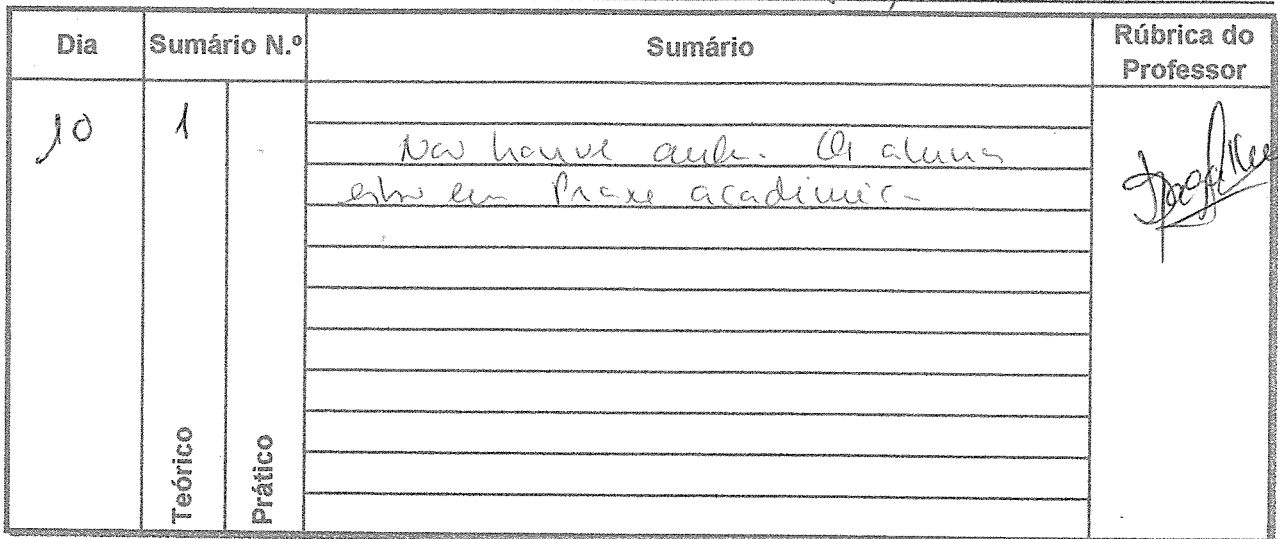 Dia Sumário N.º Sumário Rúbrica do Professor
10 1
Não houve aula. Os alunos
estão em Praxe académica
Teórico Prático